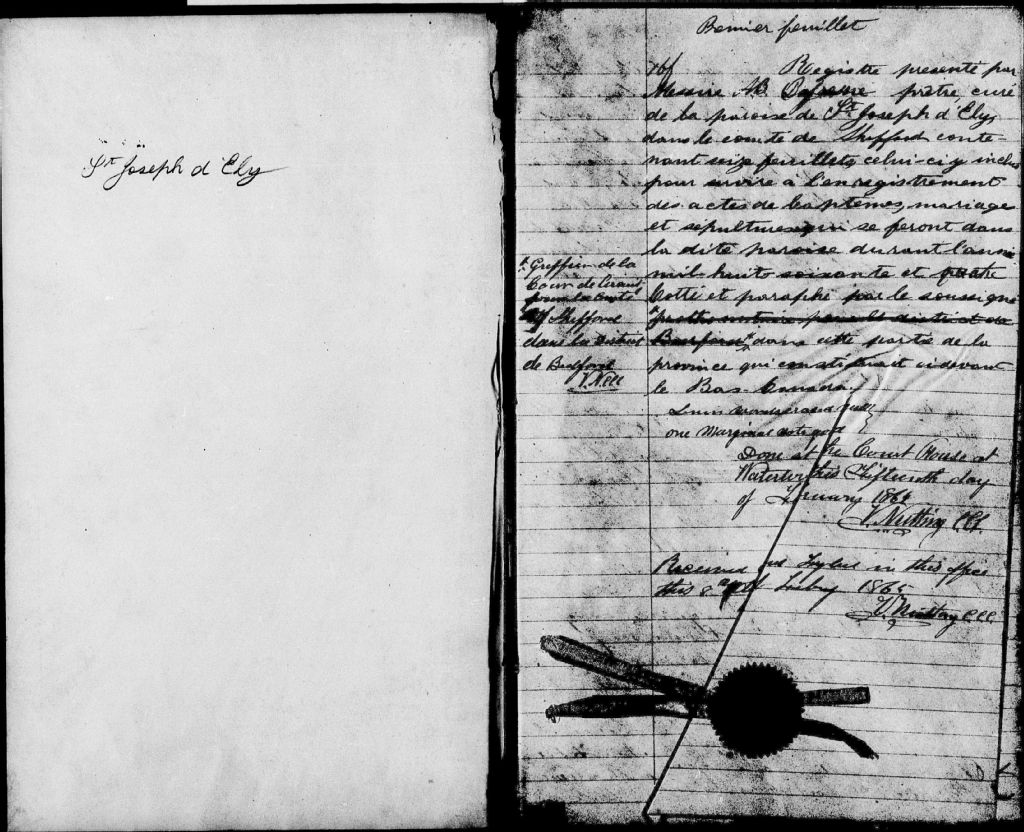 St Joseph d'Ely
Premier feuillet
16f Registre presenté par
Messire prêtre curé
de la paroise de St. Joseph d'Ely,
dans le comté de Shefford conte-
nant seize feuillets, celui-ci y inclus
pour servire à l'enregistrement
des actes de baptêmes, mariage
et sépultures qui se feront dans
la dite paroise durant l'anné
mil-huit soixante et quatre
Cotté et paraphé par le soussigné
protonotaire pour le district de
dans cette partie de la
province qui constituait cidevant
le Bas-Canada.
Greffier de la
Cour de Circuit
pour le Comté
de Shefford
dans le District
de Bedford
one Marginal note good
Done at the Court House at
Waterloo this Fifteenth day
of January 186
J. Nutting CCC
Received and in this office
this 8th of Feby 1865
J. Nutting CCC